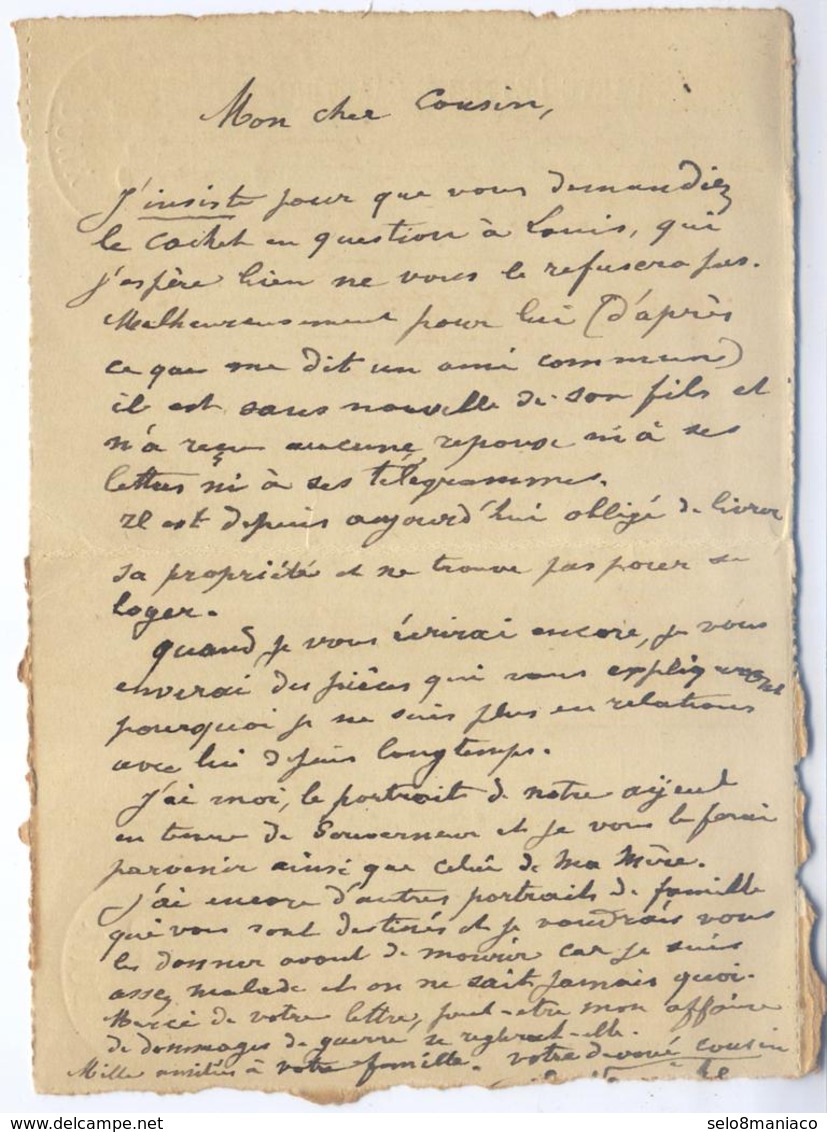 Mon cher Cousin,
J'insiste pour que vous demandiez
le cachet en question à Louis, qui
j'espère bien ne vous le refusera pas.
Malheureusement pour lui (d'après
ce que me dit un ami commun)
il est sans nouvelle de son fils et
n'a reçu aucune reponse ni à ses
lettres ni à ses télégrammes.
Il est depuis aujourd'hui obligé de livrer
sa propriété et ne trouve pas pour se
loger.
Quand je vous écrirai encore, je vous
enverai des pièces qui vous expliqueront
pourquoi je ne suis plus en relations
avec lui depuis longtemps.
J'ai moi, le portrait de notre ayeul
en tenue de Gouverneur et je vous le ferai
parvenir ainsi que celui de Ma Mère.
J'ai encore d'autres portraits de famille
qui vous sont destinés et je voudrais vous
les donner avant de mourir car je suis
assez malade et on ne sait jamais quoi.
Merci de votre lettre, peut-etre mon affaire
de dommages de guerre se reglerat-elle.
Mille amitiés à votre famille. votre devoué cousin
selo8maniaco